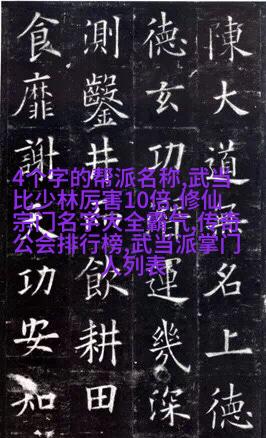 4个字的帮派名称,武当
比少林厉害10倍,修仙
宗门名字大全霸气,传奇
公会排行榜,武当派掌门
人列表
陳大道名上德
德玄功運幾深
測鑿井飲耕田
食靡謝功安知